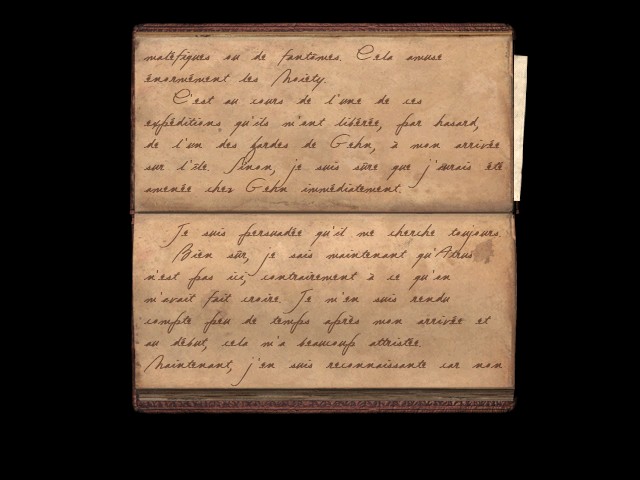 maléfiques ou de fantômes. Cela amuse
énormément les Moiety.
C'est au cours de l'une de ces
expéditions qu'ils m'ont libérée, par hasard,
de l'un des gardes de Gehn, à mon arrivée
sur l'île. Sinon, je suis sûre que j'aurais été
amenée chez Gehn immédiatement.
Je suis persuadée qu'il me cherche toujours.
Bien sûr, je sais maintenant qu'Atrus
n'est pas ici, contrairement à ce qu'on
m'avait fait croire. Je m'en suis rendu
compte peu de temps après mon arrivée et
au début, cela m'a beaucoup attristée.
Maintenant, j'en suis reconnaissante car non